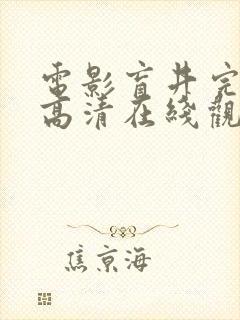 電影盲井完
高清在綫觀
焦京海